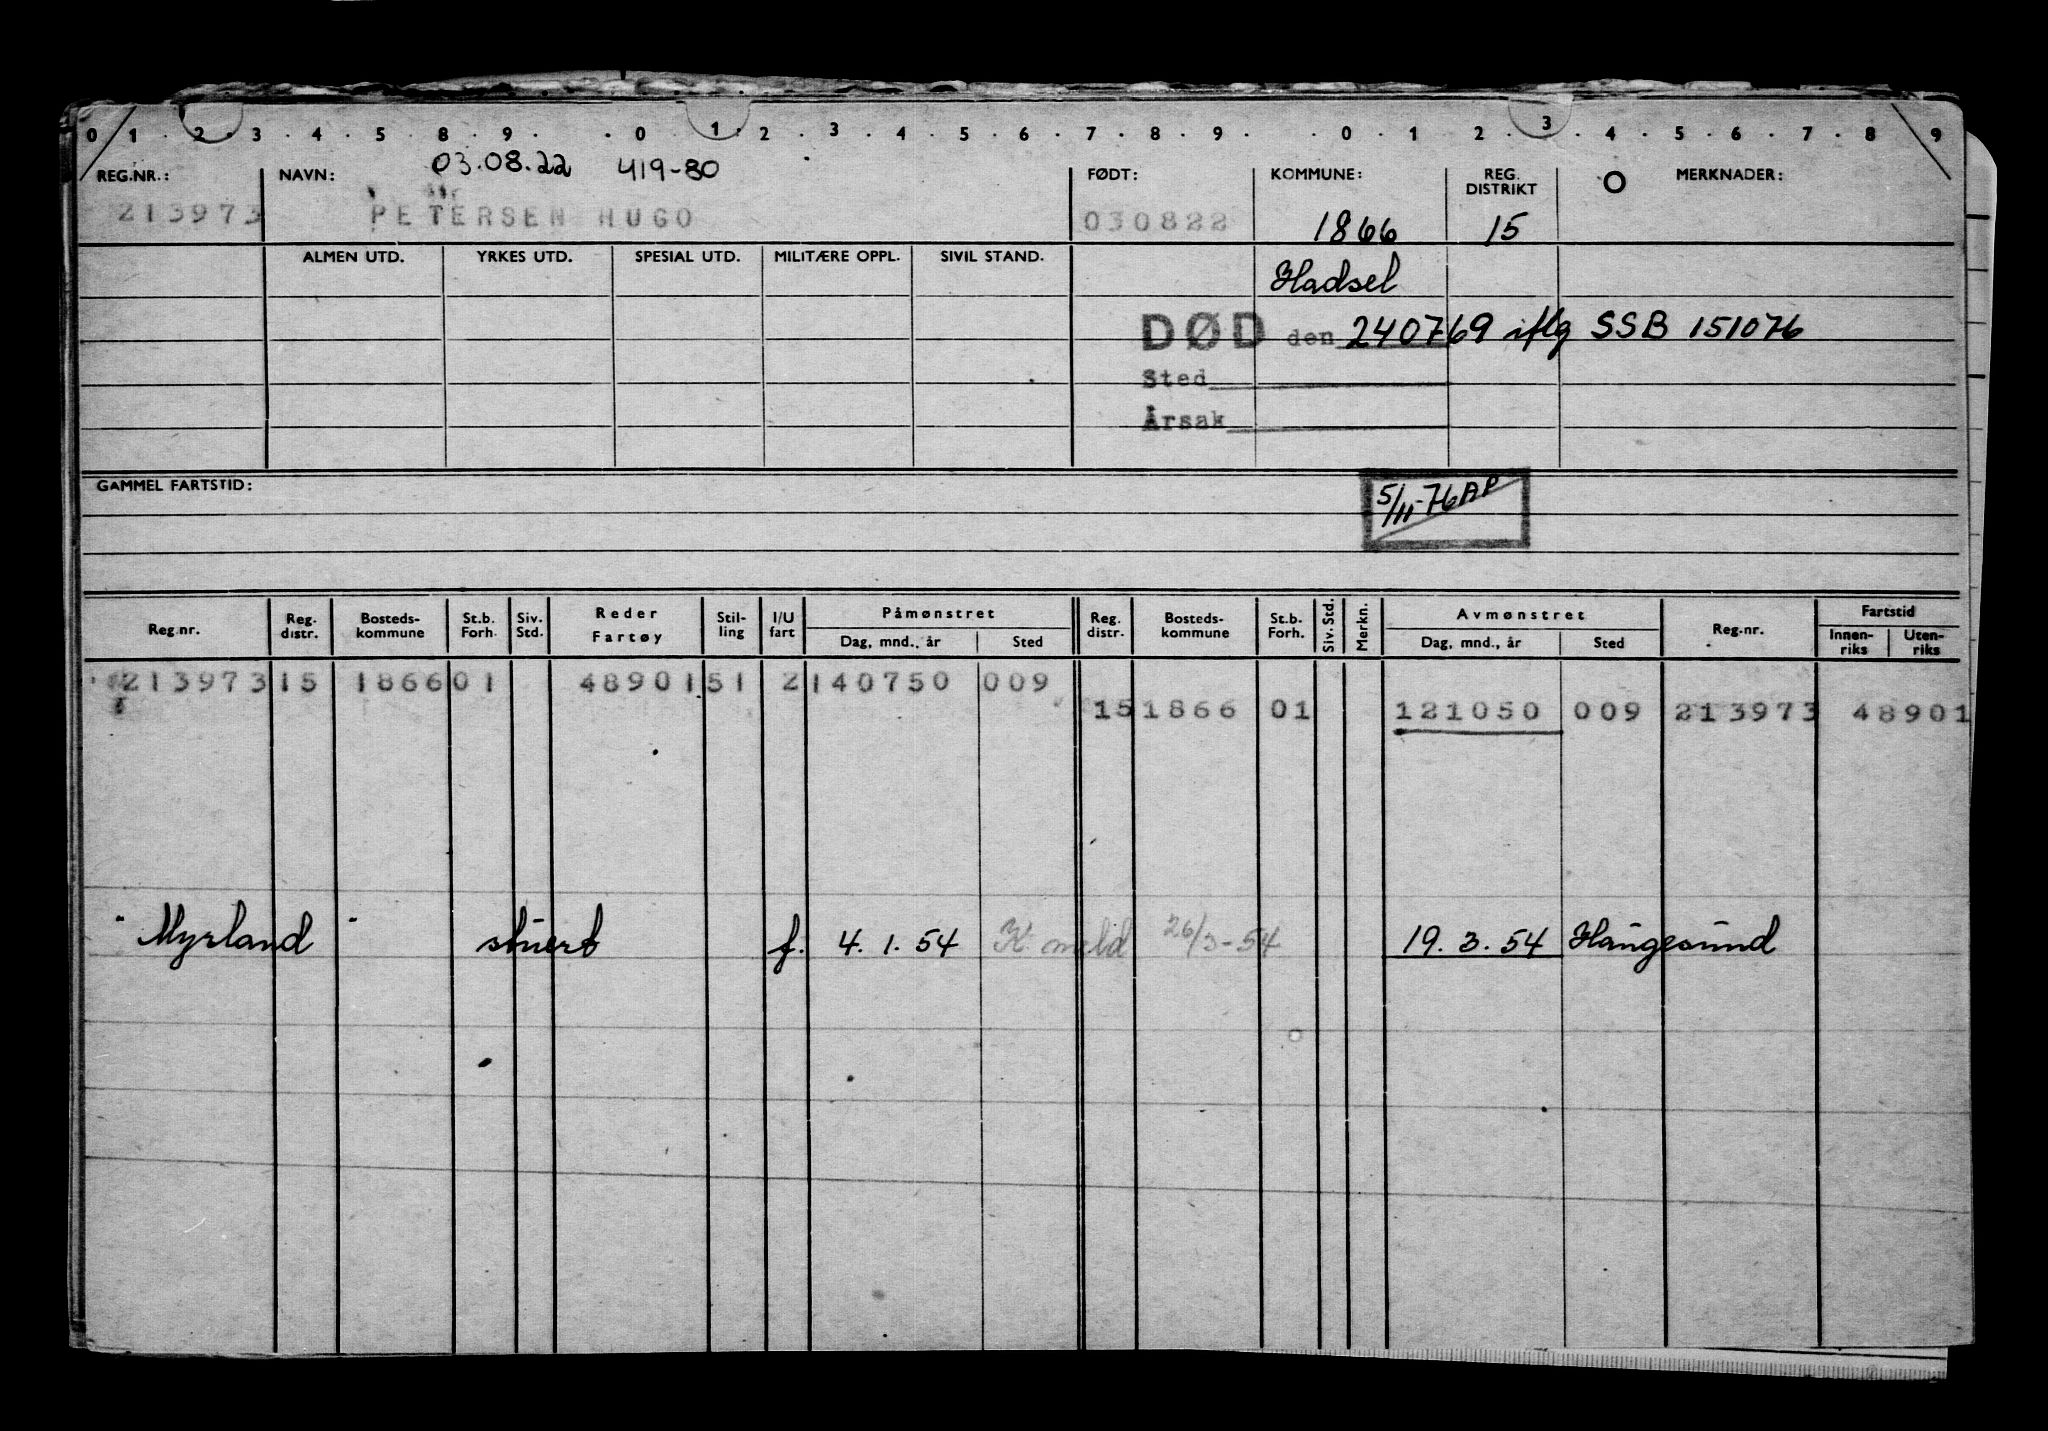 0 1 . 2 . 3 . 4 . 5 . 8 . 9 . . 0 . 1 . 2 . 3 . 4 . 5 . 6 . 7 . 8 . 9 . 0 . 1 . 2 . 3 . 4 . 5 . 6 . 7 . 8 . 9
03.08.22 419-80
REG.NR.: NAVN: FØDT: KOMMUNE: REG. DISTRIKT O MERKNADER:
213973 PETERSEN HUGO 030822 1866 15
ALMEN UTD. YRKES UTD. SPESIAL UTD. MILITÆRE OPPL. SIVIL STAND. Hadsel
DØD den 240769 iflg SSB 151076
Sted
Årsak
GAMMEL FARTSTID: 5/11-76 AP
Reg.nr. Reg. distr. Bosteds-kommune St.b. Forh. Siv. Std. Reder Fartøy Stil-ling I/U fart Påmønstret Dag, mnd., år Sted Reg. distr. Bosteds-kommune St.b. Forh. Siv. Std. Merkn. Avmønstret Dag, mnd., år Sted Reg.nr. Fartstid Innen-riks Uten-riks
213973 15 1866 01 48901 51 2 140750 009
15 1866 01 121050 009 213973 48901
"Myrland" stuert f. 4.1.54 K meld 26/3-54 19.3.54 Haugesund